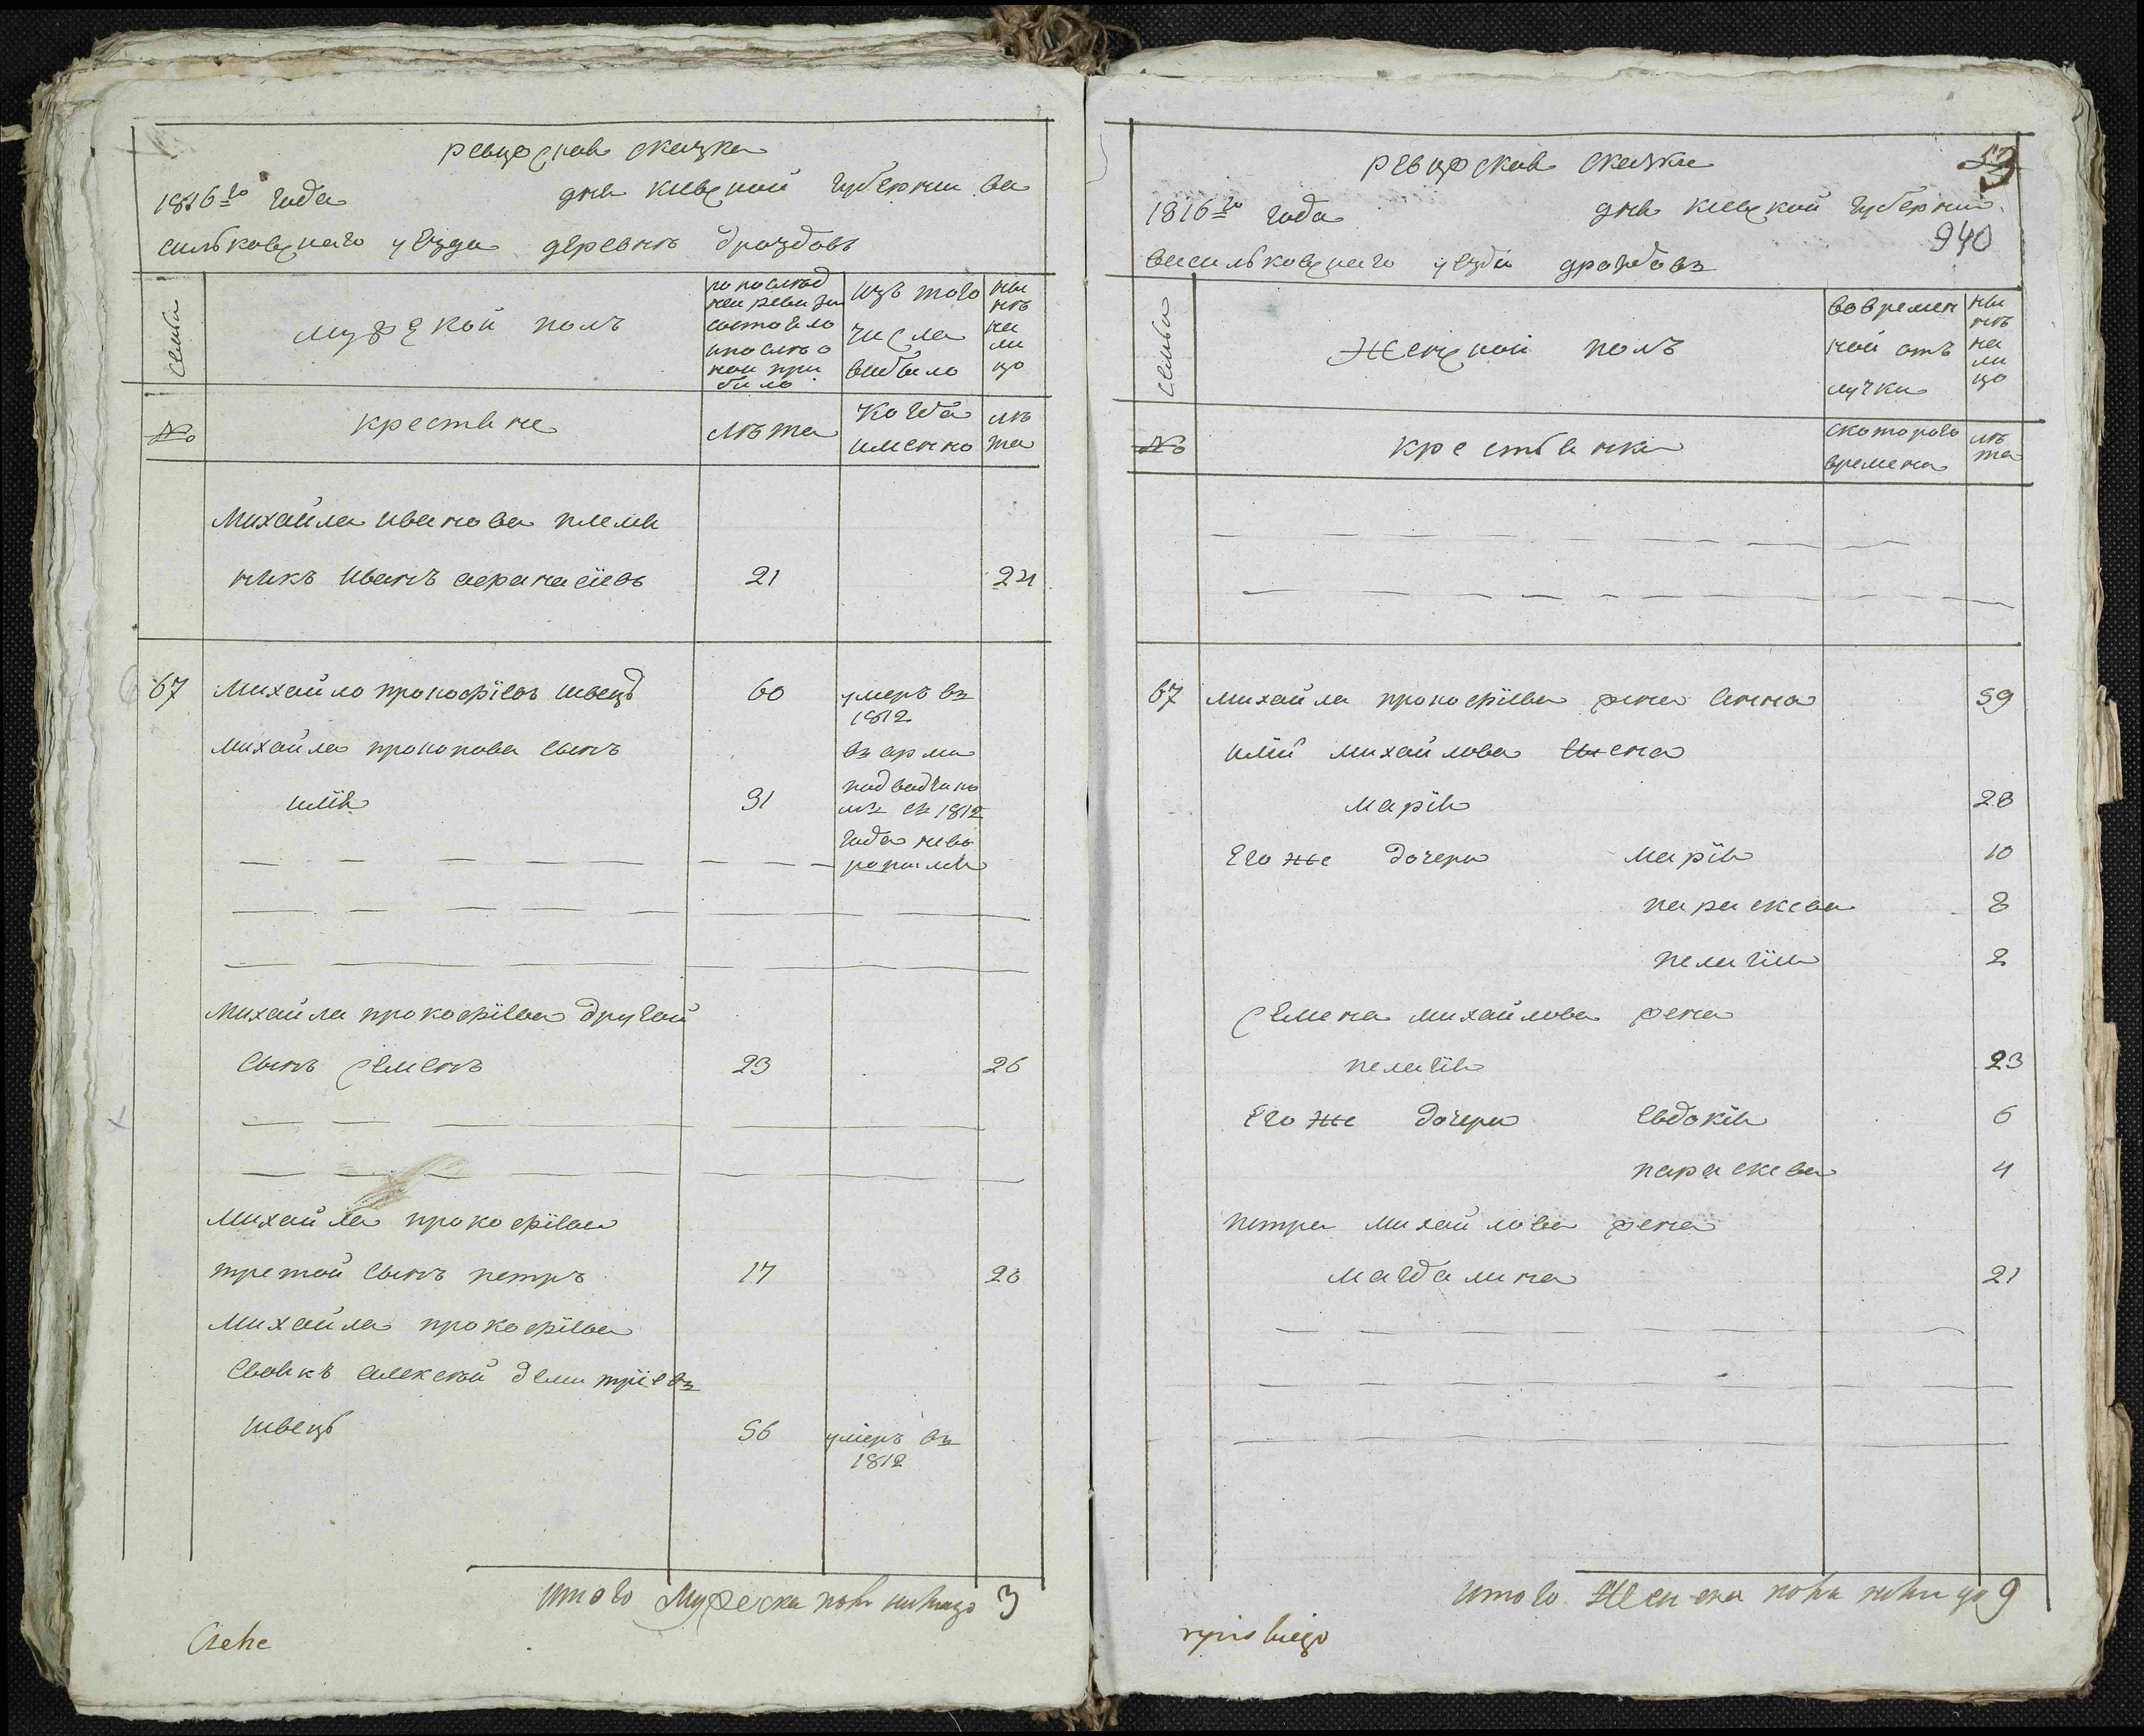 ревизская сказка
1816го года дня киевской губернии ва
сильковскаго уезда деревне дроздовъ
семьи
мужской полъ
по послед
ней ревизіи
состояло
и после о
ной при
было
изъ того
числа
выбыло
ны
не
на
ли
цо
№
крестьяне
лѣта
когда
именно
лѣ
та
михайла иванова племя
никъ иванъ афанасіевъ 21 24
67 михайло прокофіевъ швецъ 60 умеръ въ
1812
михайла прокопова сынъ въ арма
илія 31
съ 1812
года
михайла прокофіева другой
сынъ семенъ 23 26
михайла прокофіева
третой сынъ петръ 17 20
михайла прокофіева
своякъ алексей демитріевъ
швецъ 56 умеръ въ
1812
итого мужеска пола налицо 3
ревизская сказка 53
1816го года дня киевской губернии
940
васильковскаго уезда дроздовъ
семьи
женской полъ
во времен
ной отъ
лучки
ны
не
на
ли
цо
№
крестьянки
скоторого
времени
лѣ
та
67 михайла прокофіева жена анна 59
иліи михайлова жена
марія 28
его же дочери марія 10
параскева 8
пелагія 2
семена михайлова жена
пелагія 23
его же дочери евдокія 6
параскева 4
петра михайлова жена
магдалина 21
итого женска пола налицо 9